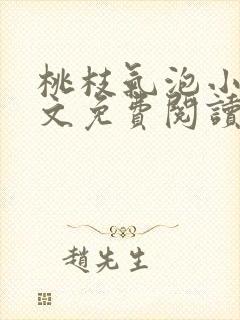 桃枝氣泡小
文免費閱讀
趙先生